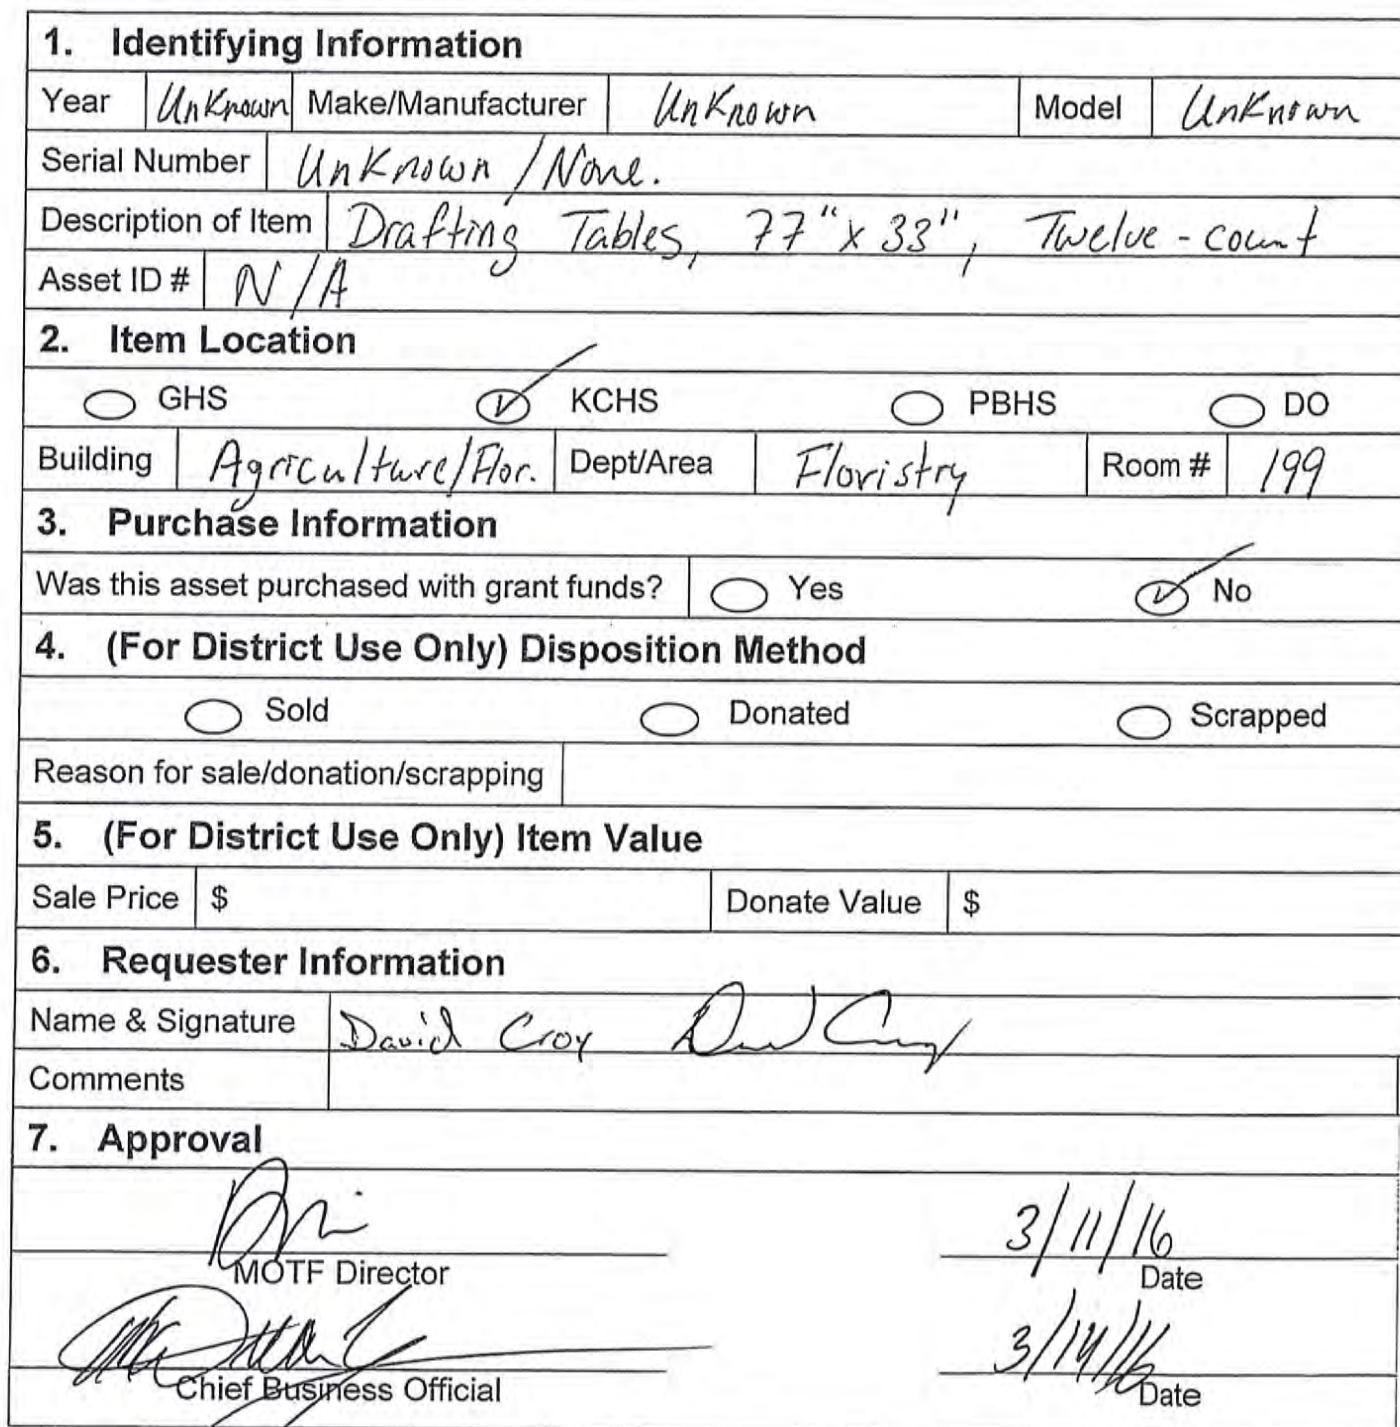 1. Identifying Information
Year Unknown Make/Manufacturer Unknown Model Unknown
Serial Number Unknown / None.
Description of Item Drafting Tables, 77" x 33", Twelve - count
Asset ID # N/A
2. Item Location
GHS KCHS PBHS DO
Building Agriculture/Flor. Dept/Area Floristry Room # 199
3. Purchase Information
Was this asset purchased with grant funds? Yes No
4. (For District Use Only) Disposition Method
Sold Donated Scrapped
Reason for sale/donation/scrapping
5. (For District Use Only) Item Value
Sale Price $ Donate Value $
6. Requester Information
Name & Signature David Croy
Comments
7. Approval
3/11/16
MOTF Director Date
3/14/16
Chief Business Official Date